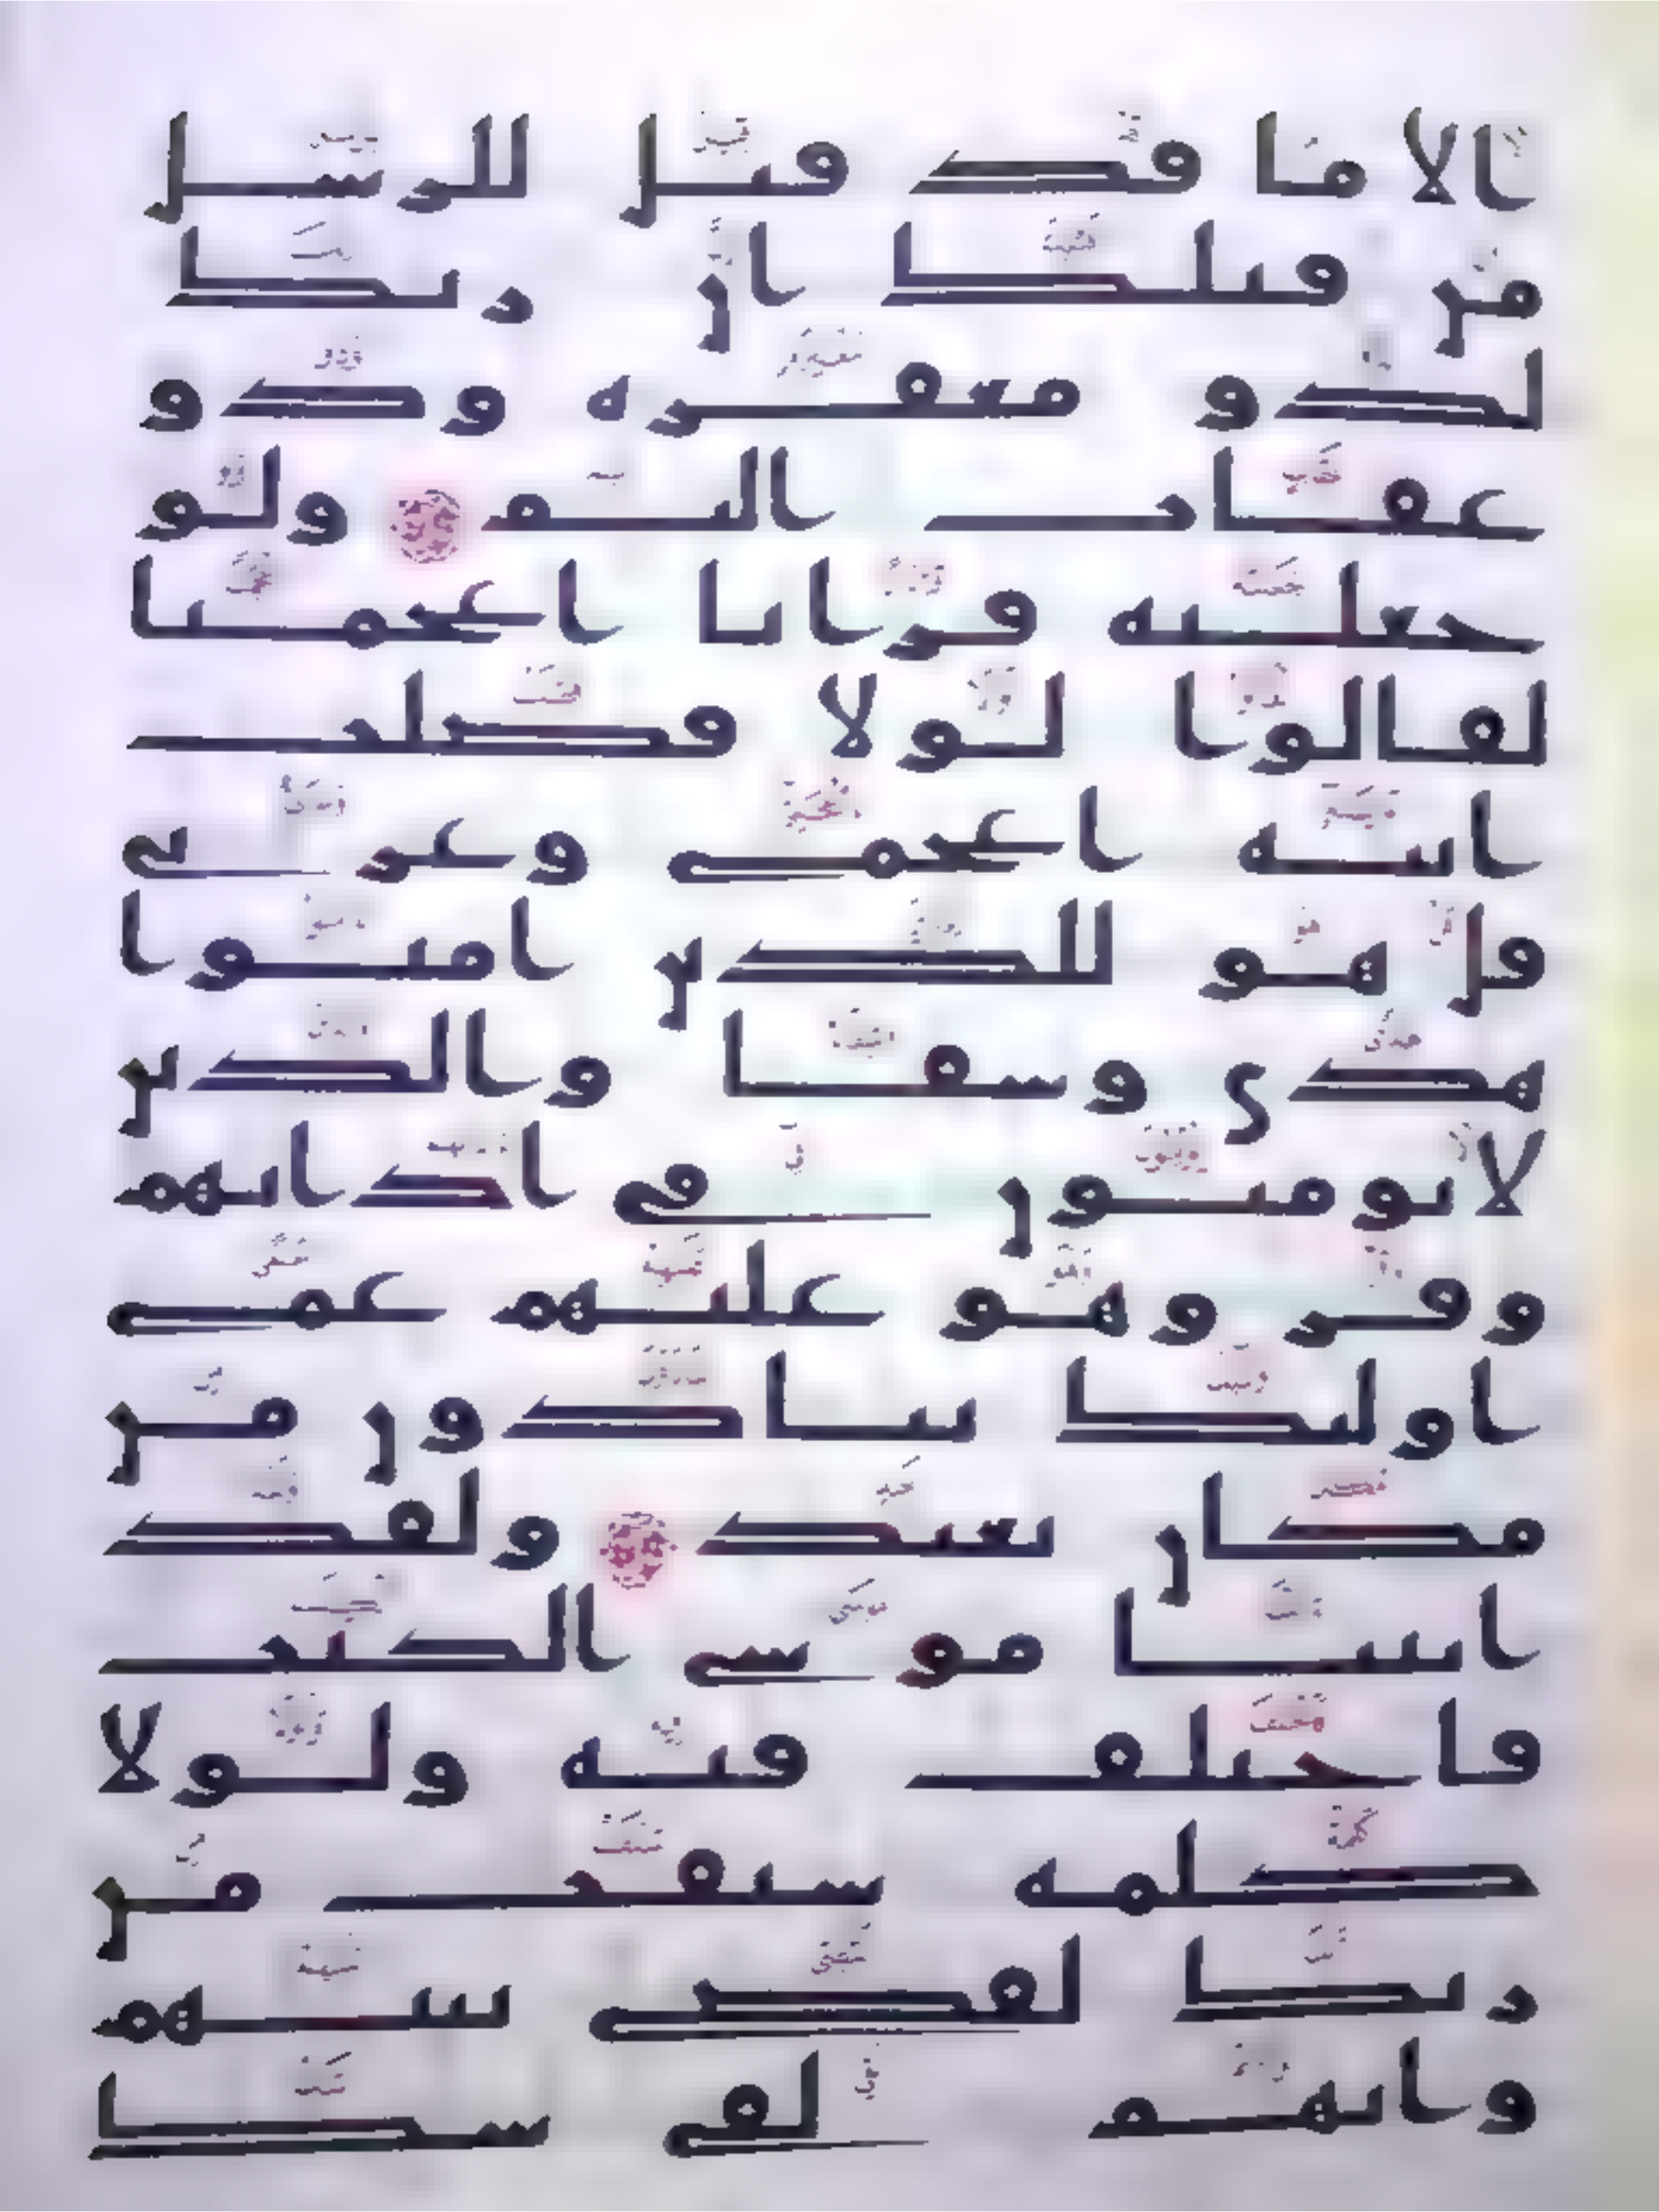 الا ما قد قيل للرسل
من قبلك ان ربك
لذو مغفره وذو
عقاب اليم ولو
جعلنه قرانا اعجميا
لقالوا لولا فصلت
ايته اعجمى وعربى
قل هو للذين امنوا
هدى وشفا والذين
لا يومنون فى اذانهم
وقر وهو عليهم عمى
اوليك ينادون من
مكان بعيد ولقد
اتينا موسى الكتب
فاختلف فيه ولولا
كلمه سبقت من
ربك لقضى بينهم
وانهم لفى شك